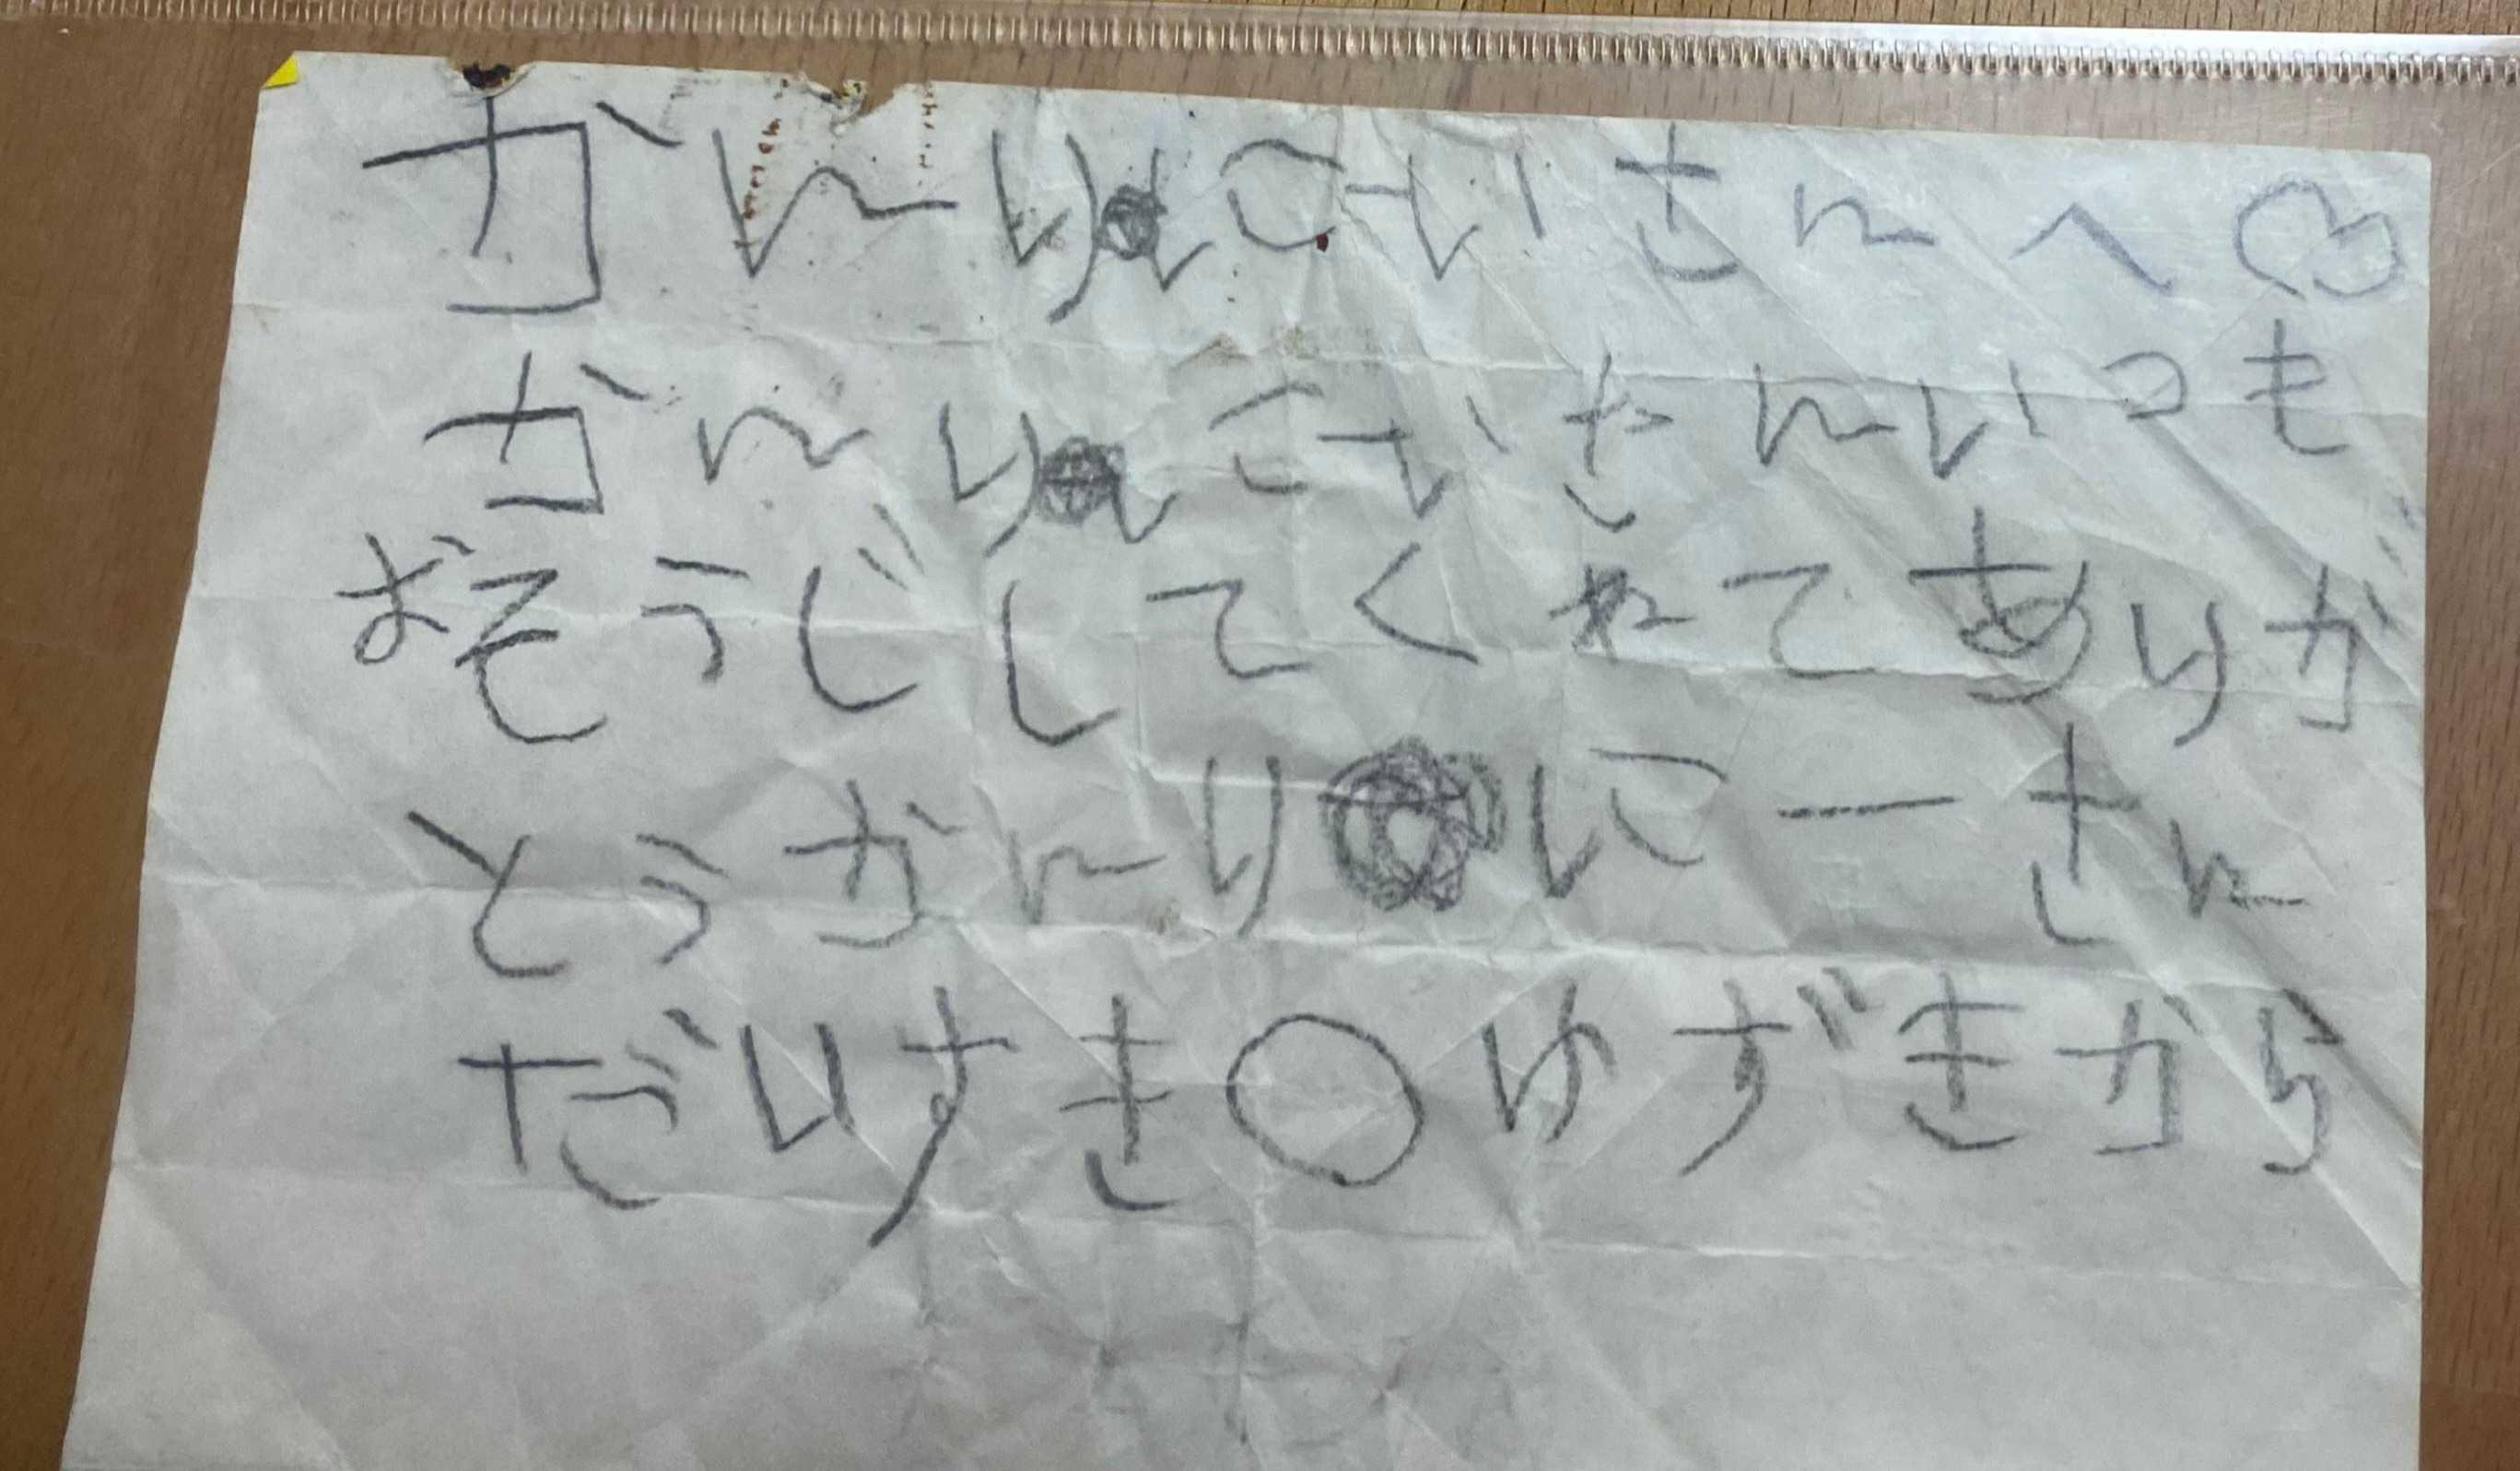 かんりにーいさんへ♡
かんりにーいさんいつも
おそうじしてくれてありが
とうかんりにーさん
だいすき○ゆずきから